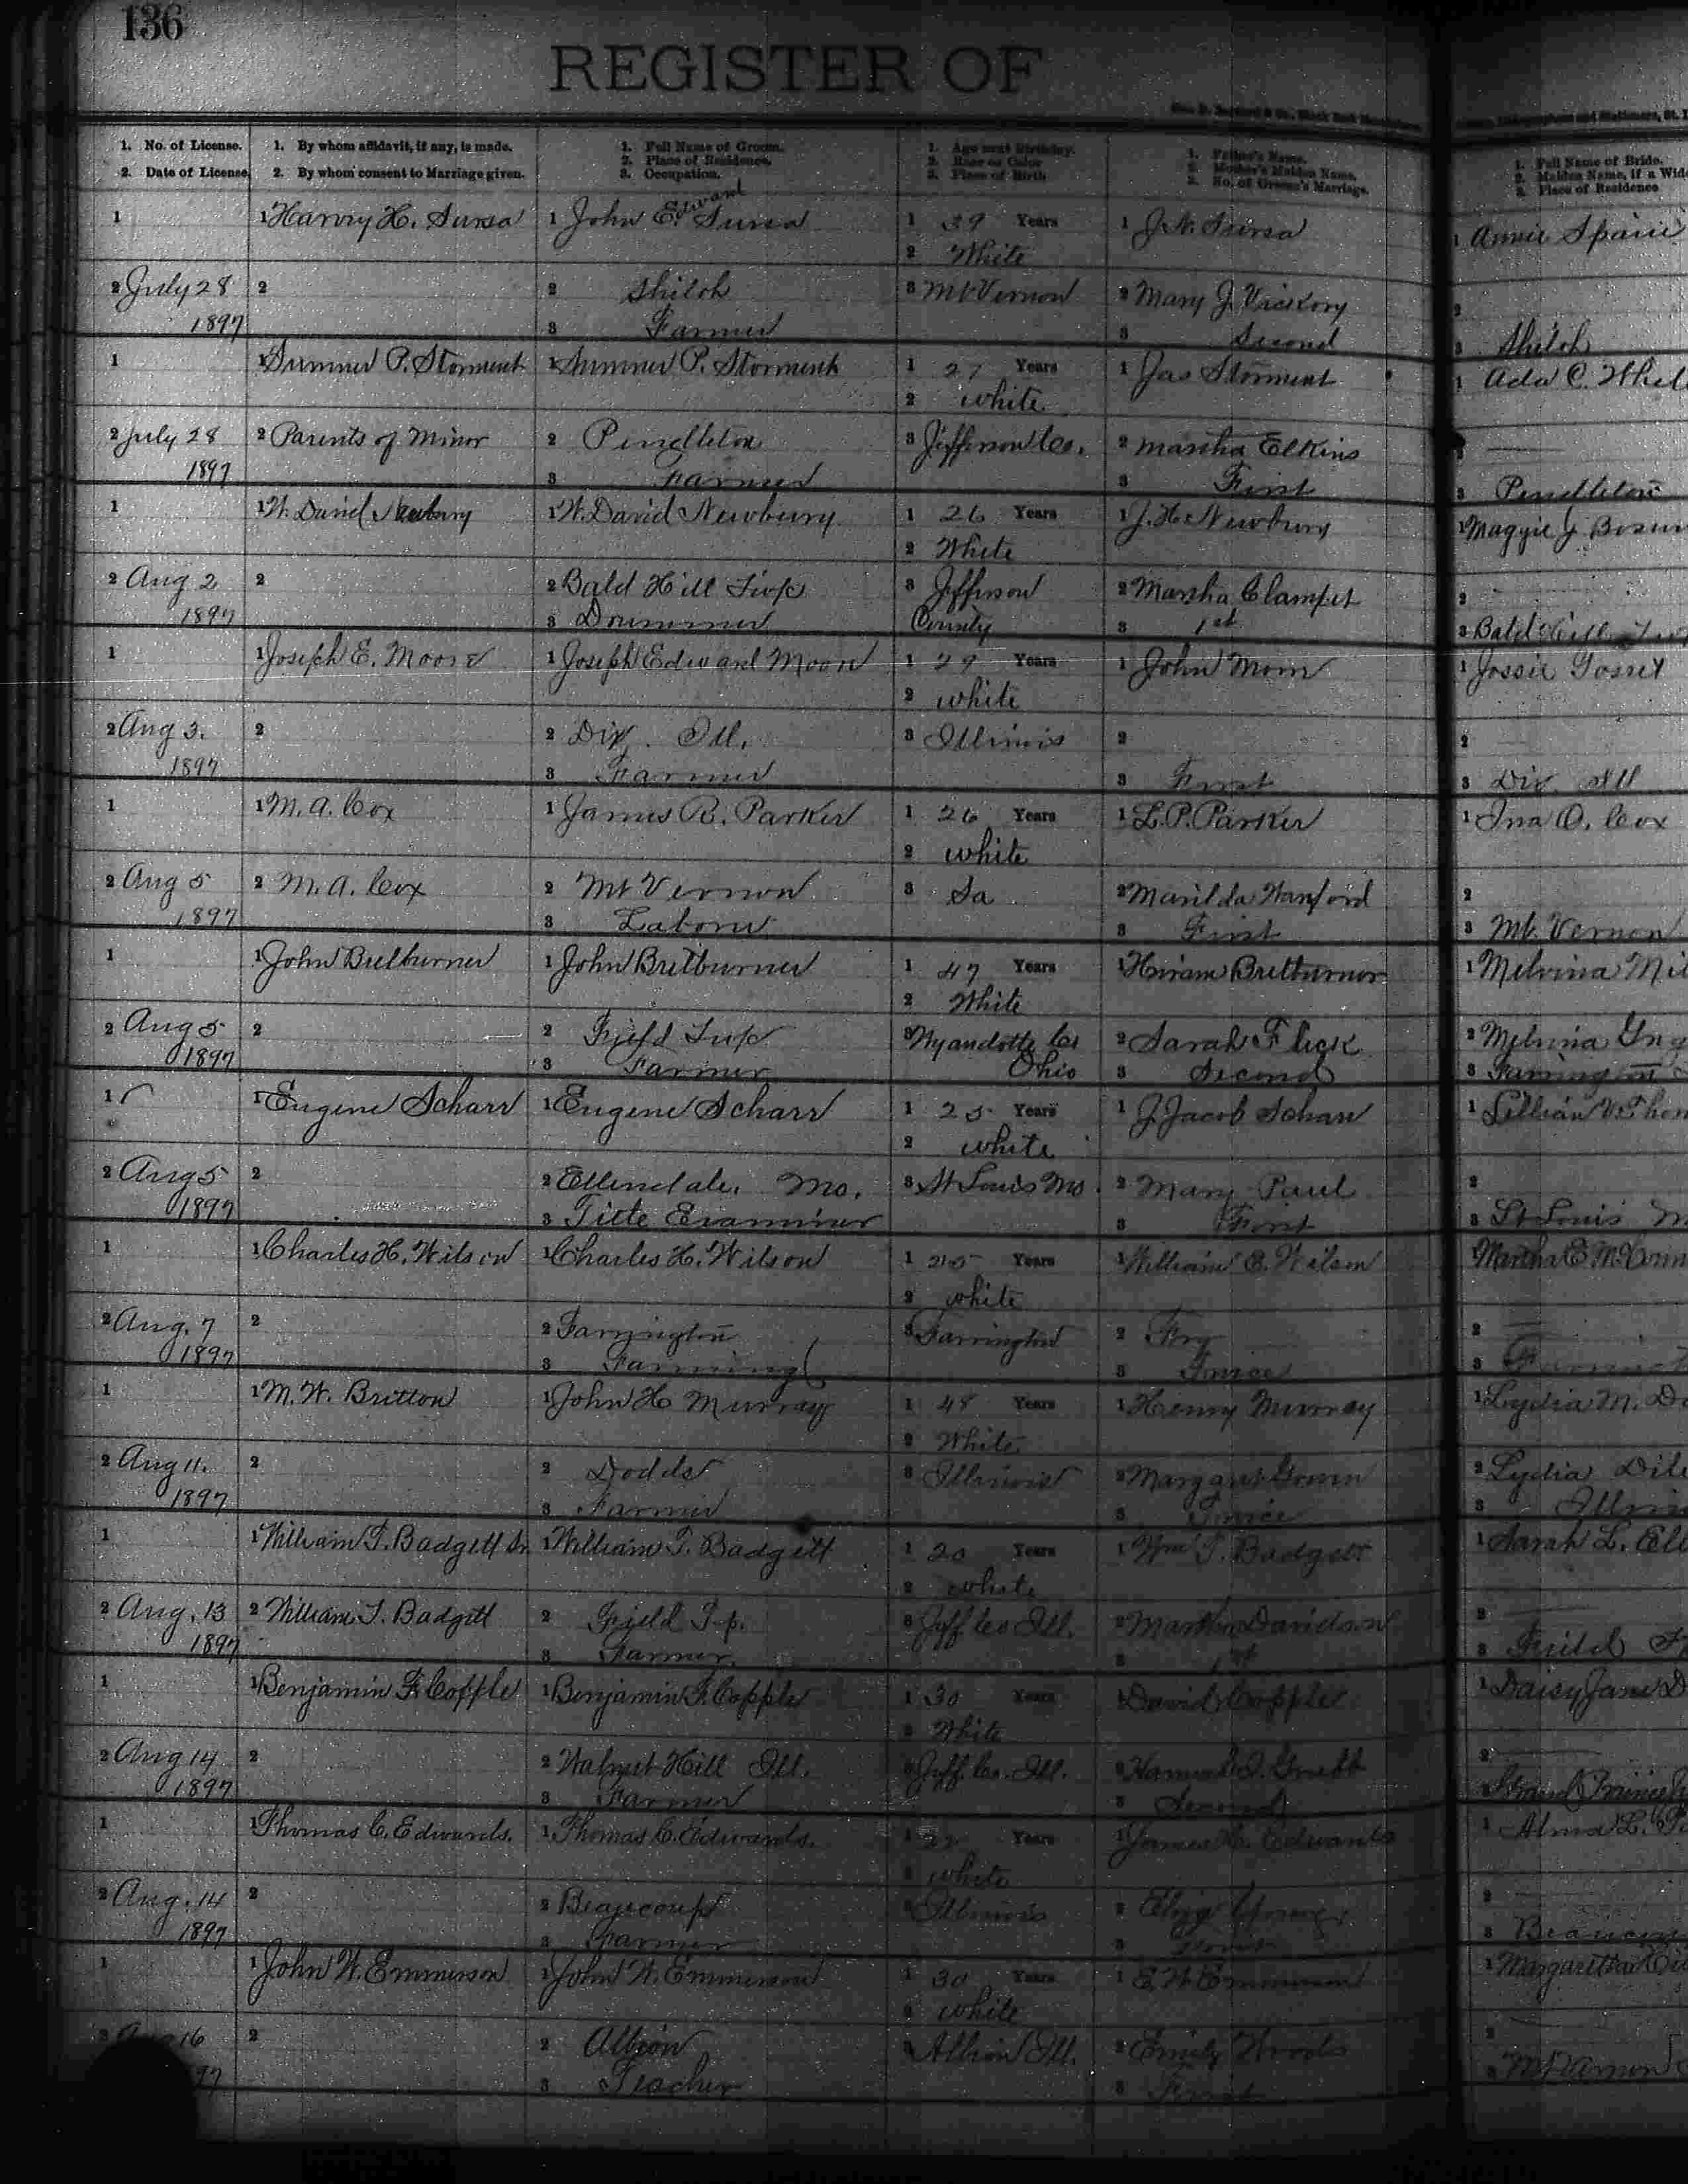 136
REGISTER OF
1. No. of License.
2. Date of License.
1. By whom affidavit, if any, is made.
2. By whom consent to Marriage given.
1. Full Name of Groom.
2. Place of Residence.
3. Occupation.
1. Age next Birthday.
2. Race or Color
3. Place of Birth
1. Father's Name.
2. Mother's Maiden Name.
3. No. of Groom's Marriage.
1. Full Name of Bride.
2. Maiden Name, if a Wid
3. Place of Residence
1 1 Harvy H. Sursa 1 John E. Edward Sursa 1 39 Years 1 J. N. Sursa 1 Annie
2 White
2 July 28 2 2 Shiloh 3 Mt Vernon 2 Mary J. Vickory 2
1897 3 Farmer 3 Second 3 Shiloh
1 1 Sumner P. Storment 1 Sumner P. Storment 1 27 Years 1 Jas Storment 1 Ada C. Whit
2 white
2 July 28 2 Parents of Minor 2 Pendleton 3 Jefferson Co. 2 Martha Elkins
1897 3 Farmer 3 First 3 Pendleton
1 1 W. David Newbury 1 W. David Newbury 1 26 Years 1 J. H. Newbury 1 Maggie J
2 White
2 Aug 2 2 2 Bald Hill Twp 3 Jefferson 2 Martha Clampet 2
1897 3 Drummer County 3 1st 3 Bald Hill
1 1 Joseph E. Moore 1 Joseph Edward Moore 1 29 Years 1 John Moore 1 Jossie
2 white
2 Aug 3. 2 2 Dix. Ill. 3 Illinois 2 2
1897 3 Farmer 3 First 3 Dix. Ill
1 1 M. A. Cox 1 James R. Parker 1 26 Years 1 L. P. Parker 1 Ina O. Cox
2 white
2 Aug 5 2 M. A. Cox 2 Mt Vernon 3 2 Marilda Hanford 2
1897 3 Laborer 3 First 3 Mt. Vernon
1 1 John Britburner 1 John Britburner 1 47 Years 1 Hiram Britburner 1 Melvina Mil
2 White
2 Aug 5 2 2 Field Twp 3 Wyandotte Co 2 Sarah Flick 2 Melvina Ing
1897 3 Farmer Ohio 3 Second 3 Farrington
1 1 Eugene Scharr 1 Eugene Scharr 1 25 Years 1 J. Jacob Scharr 1 Lillian V. Thom
2 white
2 Aug 5 2 2 Ellendale. Mo. 3 St Louis Mo. 2 Mary Paul 2
1897 3 Title Examiner 3 First 3 St Louis M
1 1 Charles H. Wilson 1 Charles H. Wilson 1 25 Years 1 William E. Wilson 1 Martha E. McConn
2 white
2 Aug. 7 2 2 Farrington 3 Farrington 2 Fry 2
1897 3 Farming 3 Twice 3
1 1 M. W. Britton 1 John H Murray 1 48 Years 1 Henry Murray 1 Lydia M. Do
2 White
2 Aug 11. 2 2 Dodds 3 Illinois 2 Margaret Gowen 2 Lydia Dil
1897 3 Farmer 3 Twice 3 Illin
1 1 William T. Badgett Sr. 1 William T. Badgett 1 20 Years 1 Wm T. Badgett 1 Sarah L. Ell
2 white
2 Aug. 13 2 William T. Badgett 2 Field T-p. 3 Jeff Co Ill. 2 Martha Davidson 2
1897 3 Farmer. 3 1st 3 Field
1 1 Benjamin F. Copple 1 Benjamin F. Copple 1 30 Years 1 David Copple 1 Daisy Jane D
2 White
2 Aug 14 2 2 Walnut Hill Ill. 3 Jeff. Co. Ill. 2 2
1897 3 Farmer 3 Second 3
1 1 Thomas C. Edwards. 1 Thomas C. Edwards. 1 Years 1 James Edwards 1 Alma L.
2 white
2 Aug. 14 2 2 Beaucoup 3 Illinois 2 2
1897 3 Farmer 3 First 3 Beaucou
1 1 John W. Emmerson 1 John W. Emmerson 1 30 Years 1 E. W. Emmerson 1 Margaretta
2 white
16 2 2 Albion 3 Albion Ill. 2 Emily Woods 2
97 3 Teacher 3 First 3 Mt Vernon